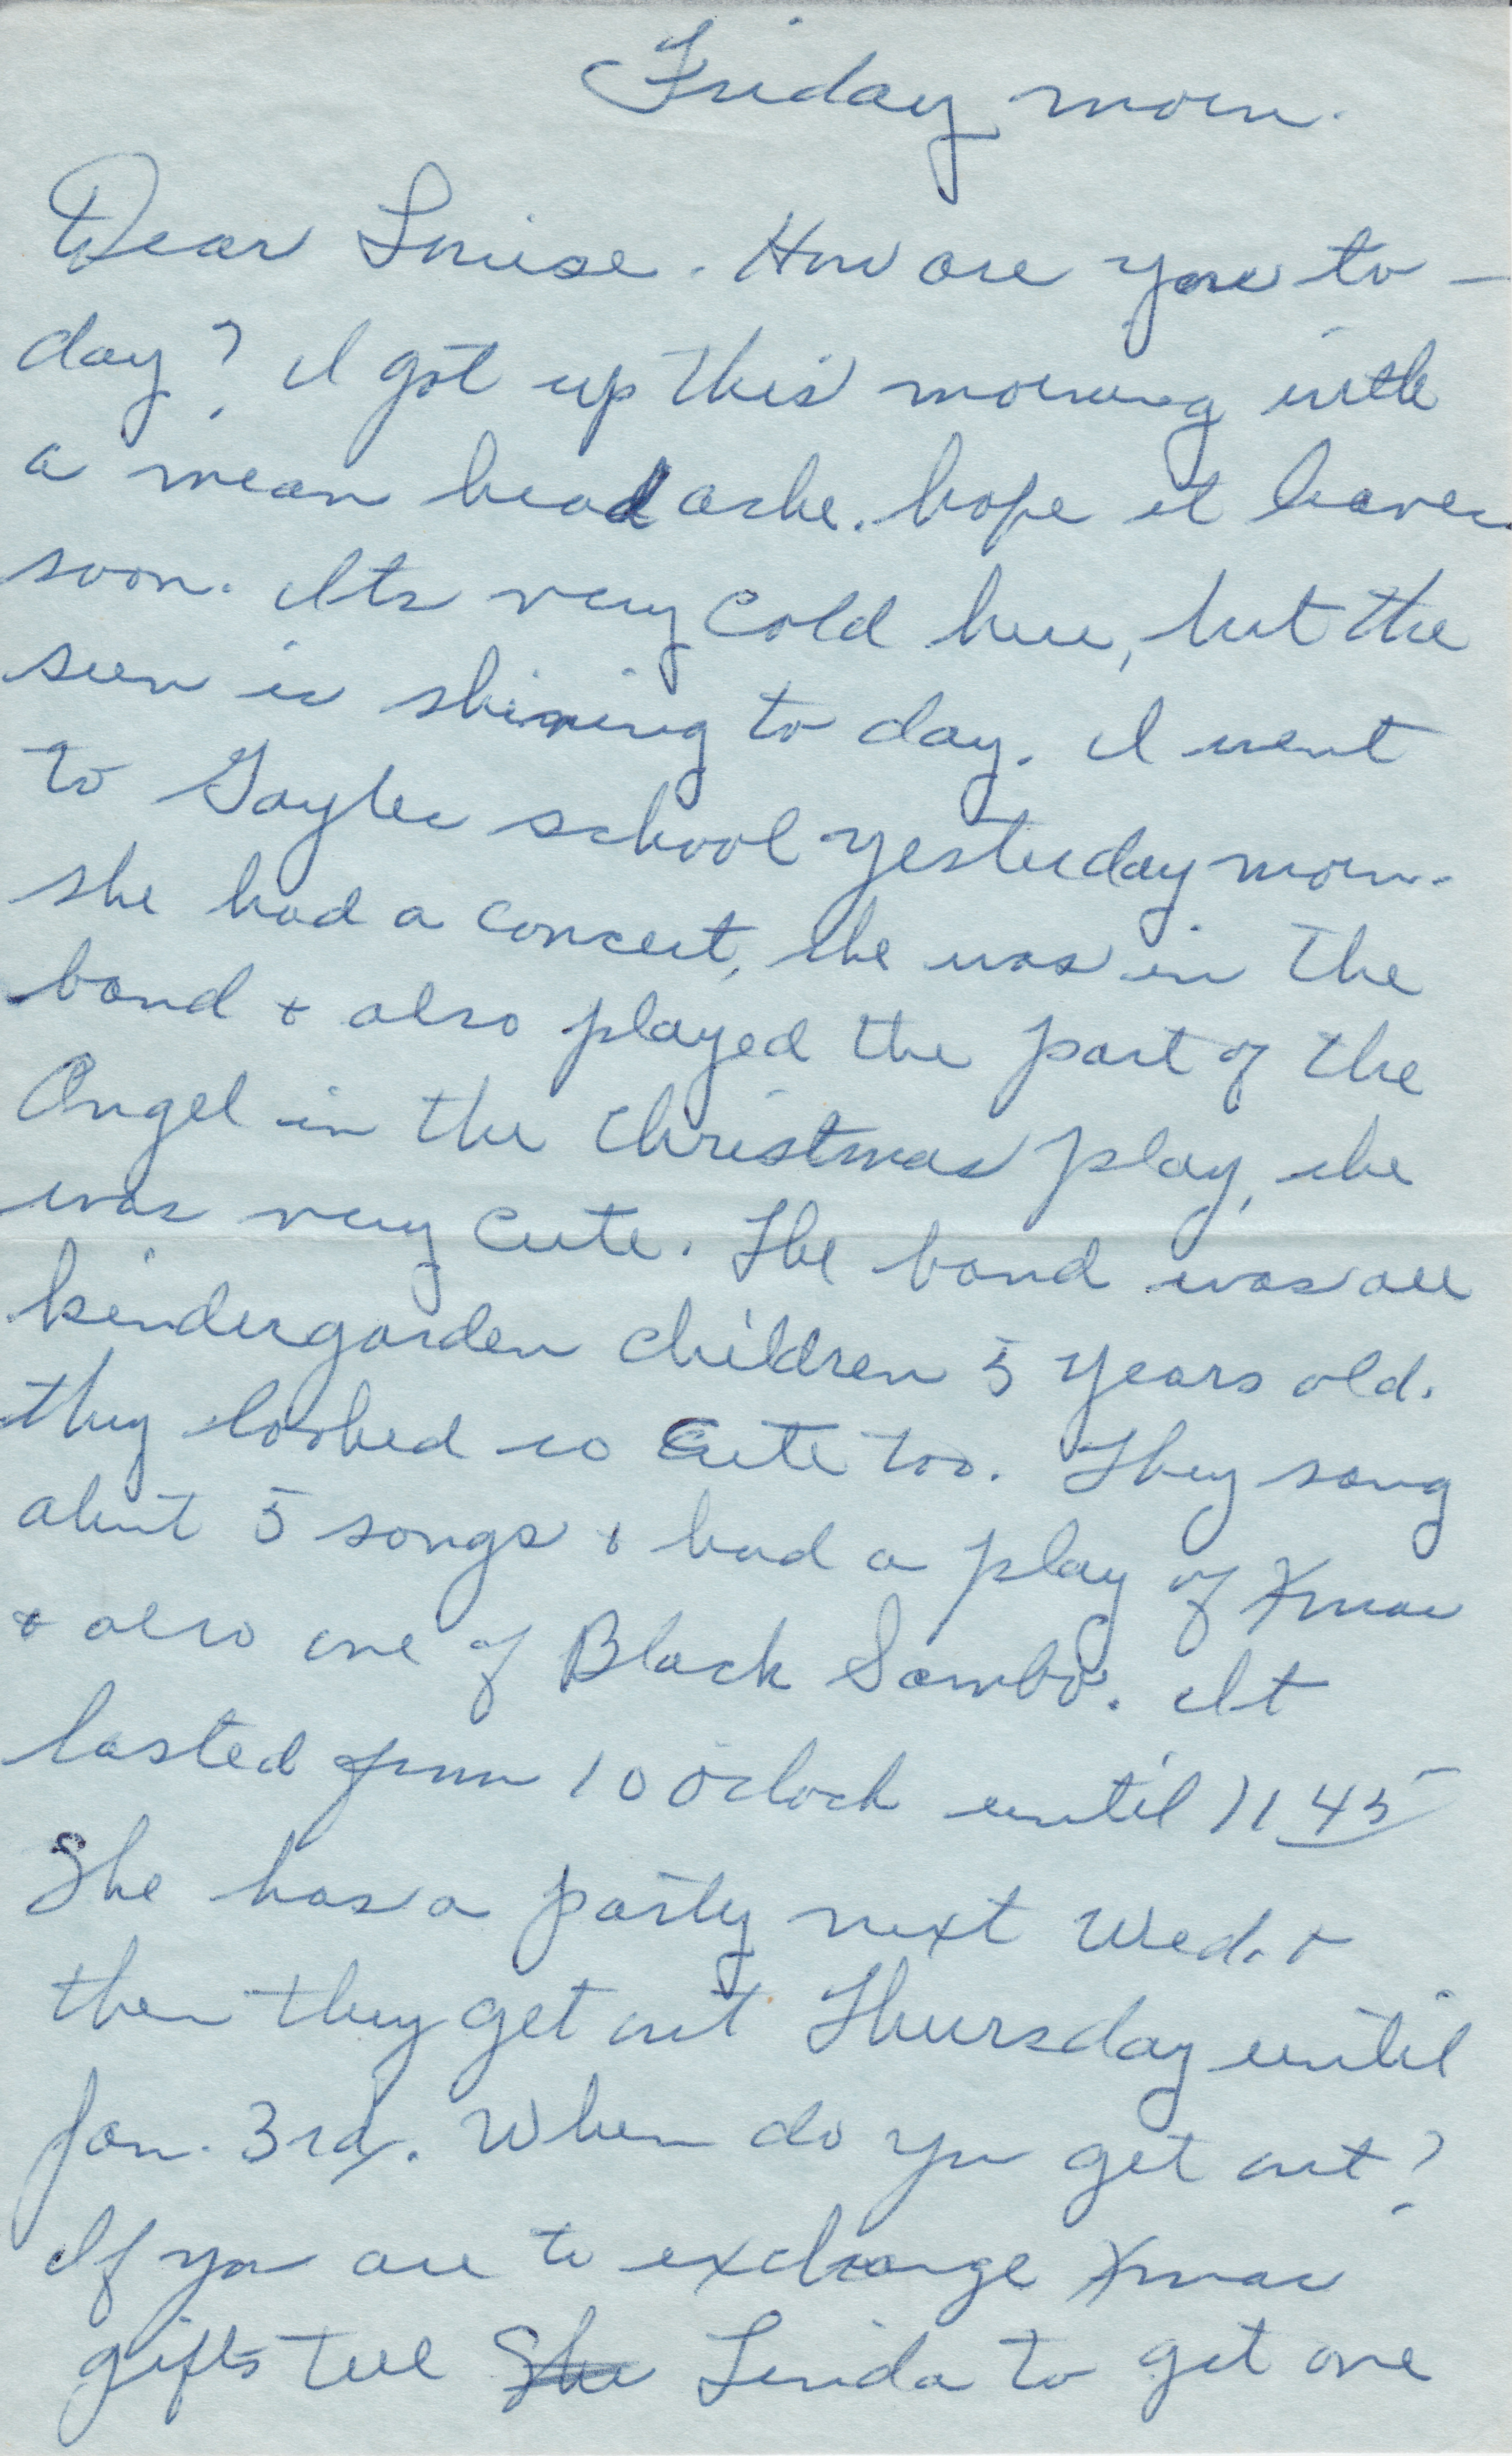 Friday morn.
Dear Louise. How are you to-
day? I got up this morning with
a mean headache. hope it leaves
soon. Its very cold here, but the
sun is shining to day. I went
to Gayles school yesterday morn.
she had a concert, she was in the
band + also played the part of the
Angel in the Christmas play, she
was very cute. The band was all
kindergarden children 5 years old.
they looked so cute too. They sang
about 5 songs + had a play of Xmas
+ also one of Black Sambo. It
lasted from 10 oclock until 11 45
She has a party next Wed. +
then they get out Thursday until
Jan. 3rd. When do you get out?
If you are to exchange Xmas
gifts tell She Linda to get one